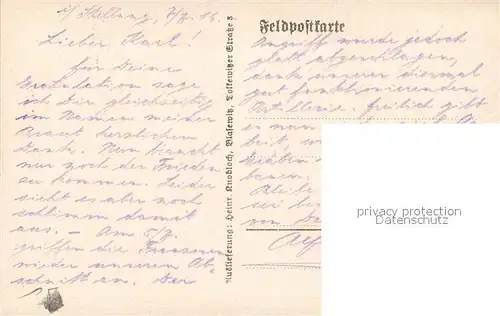 i/ Stellung, 7/7. 16.
Lieber Karl!
für Deine
Gratulation sage
ich Dir gleichzeitig
im Namen meiner
Braut herzlichen
Dank. Nun braucht
nur noch der Frieden
zu kommen. Leider
sieht es aber noch
schlimm damit
aus. – Am 5/7.
griffen die Franzosen
wieder unseren Ab-
schnitt an. Der
Auslieferung: Heinr. Knobloch, Blasewitz, Tolkewitzer Straße 8.
Feldpostkarte
Angriff wurde jedoch
glatt abgeschlagen,
dank unserer diesmal
gut funktionierenden
Artillerie. Freilich gibt
es nun
beit,
Gräben
bauen.
sei
von
Alf
privacy protection
Datenschutz